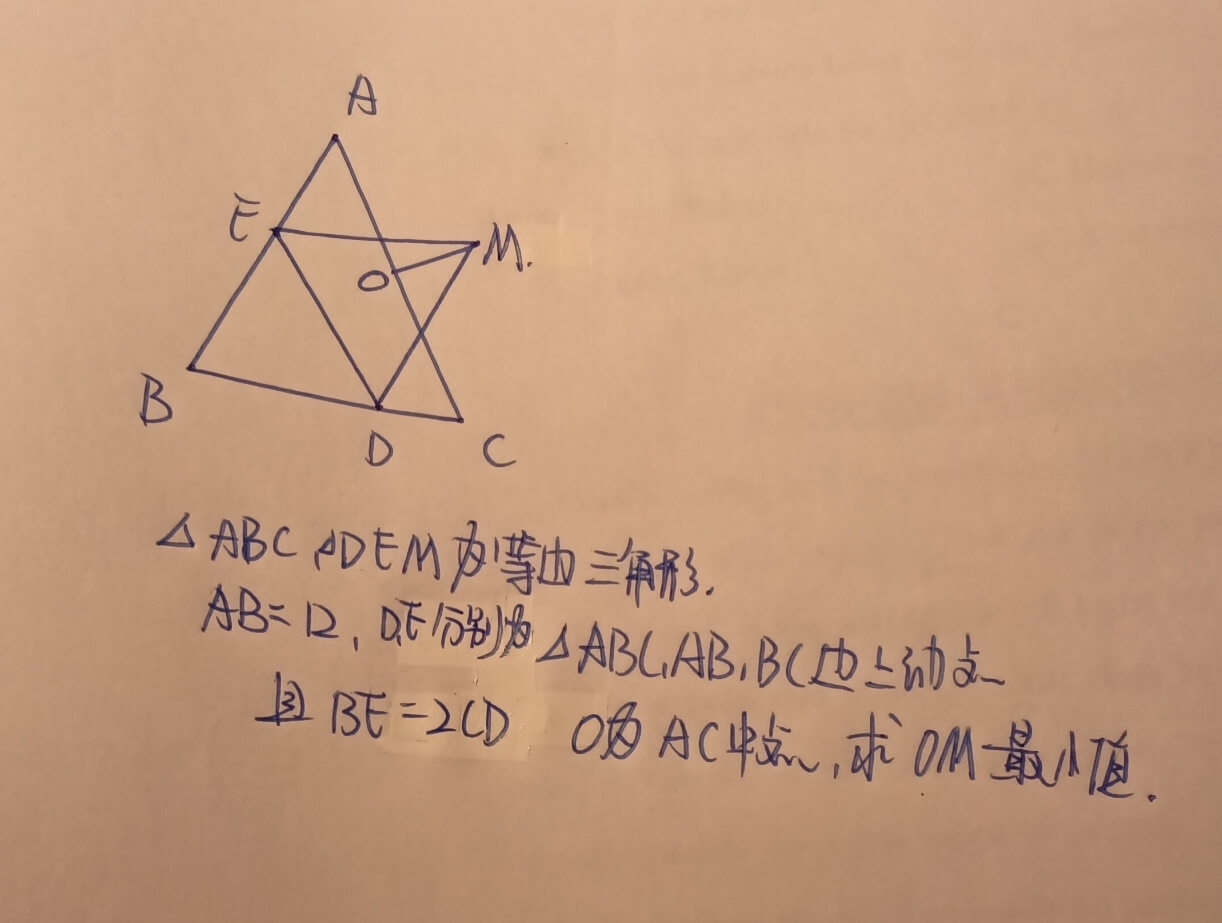 A
E
M.
O
B
D
C
△ABC △DEM为等边三角形.
AB=12, D,E分别为△ABC,AB,BC边上动点
且BE=2CD O为AC中点,求OM最小值.